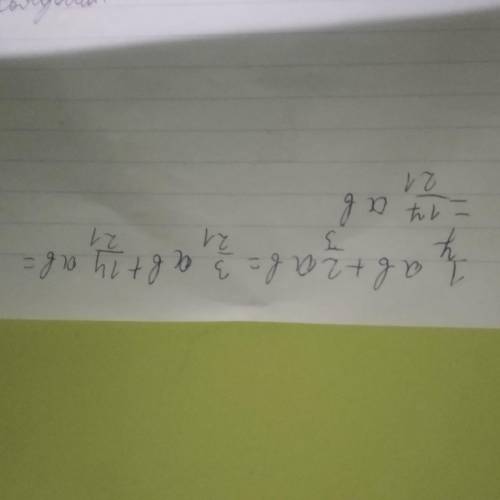 1/7 ab + 2/3 ab = 3/21 ab + 14/21 ab =
= 17/21 ab